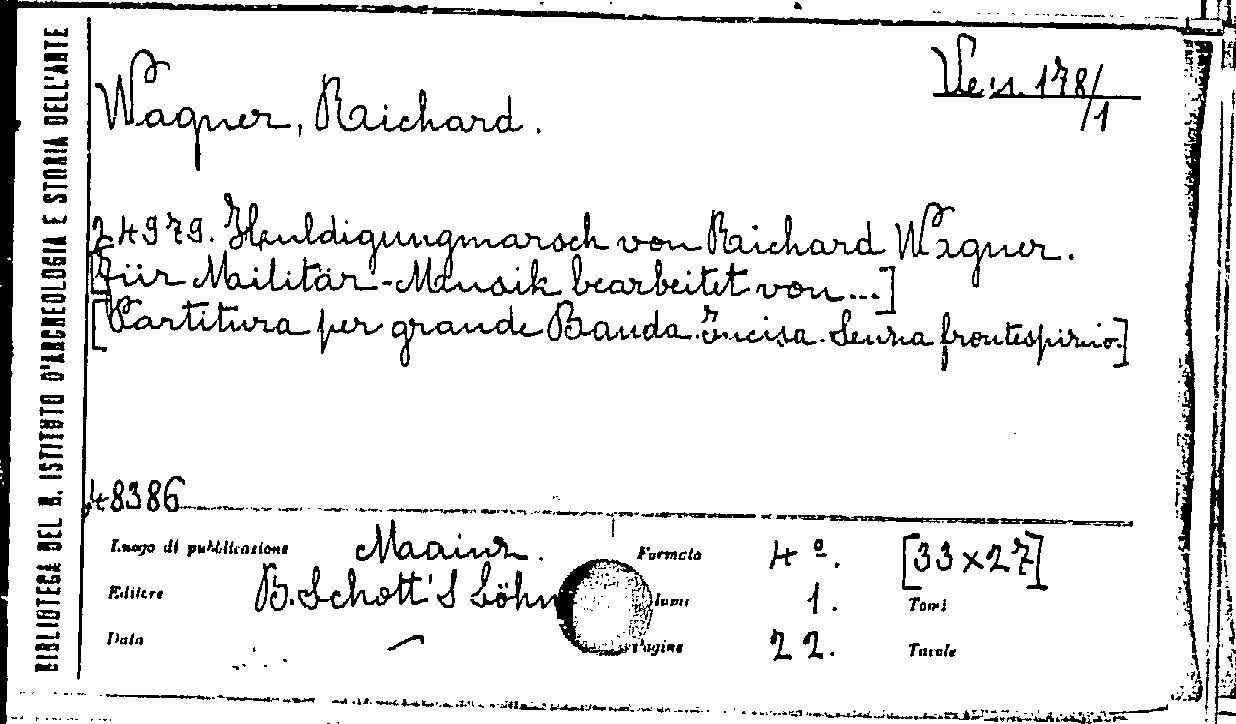 BIBLIOTECA DEL R. ISTITUTO D'ARCHEOLOGIA E STORIA DELL'ARTE
Wagner, Richard.
178/1
24979. Huldigungmarsch von Richard Wagner.
[Für Militär-Musik bearbeitet von...]
[Partitura per grande Banda. Incisa. Senza frontespizio.]
48386
Luogo di pubblicazione Mainz. Formato 4º. [33x27]
Editore B. Schott's Söhn lumi 1. Tomi
Data — Pagine 22. Tavole